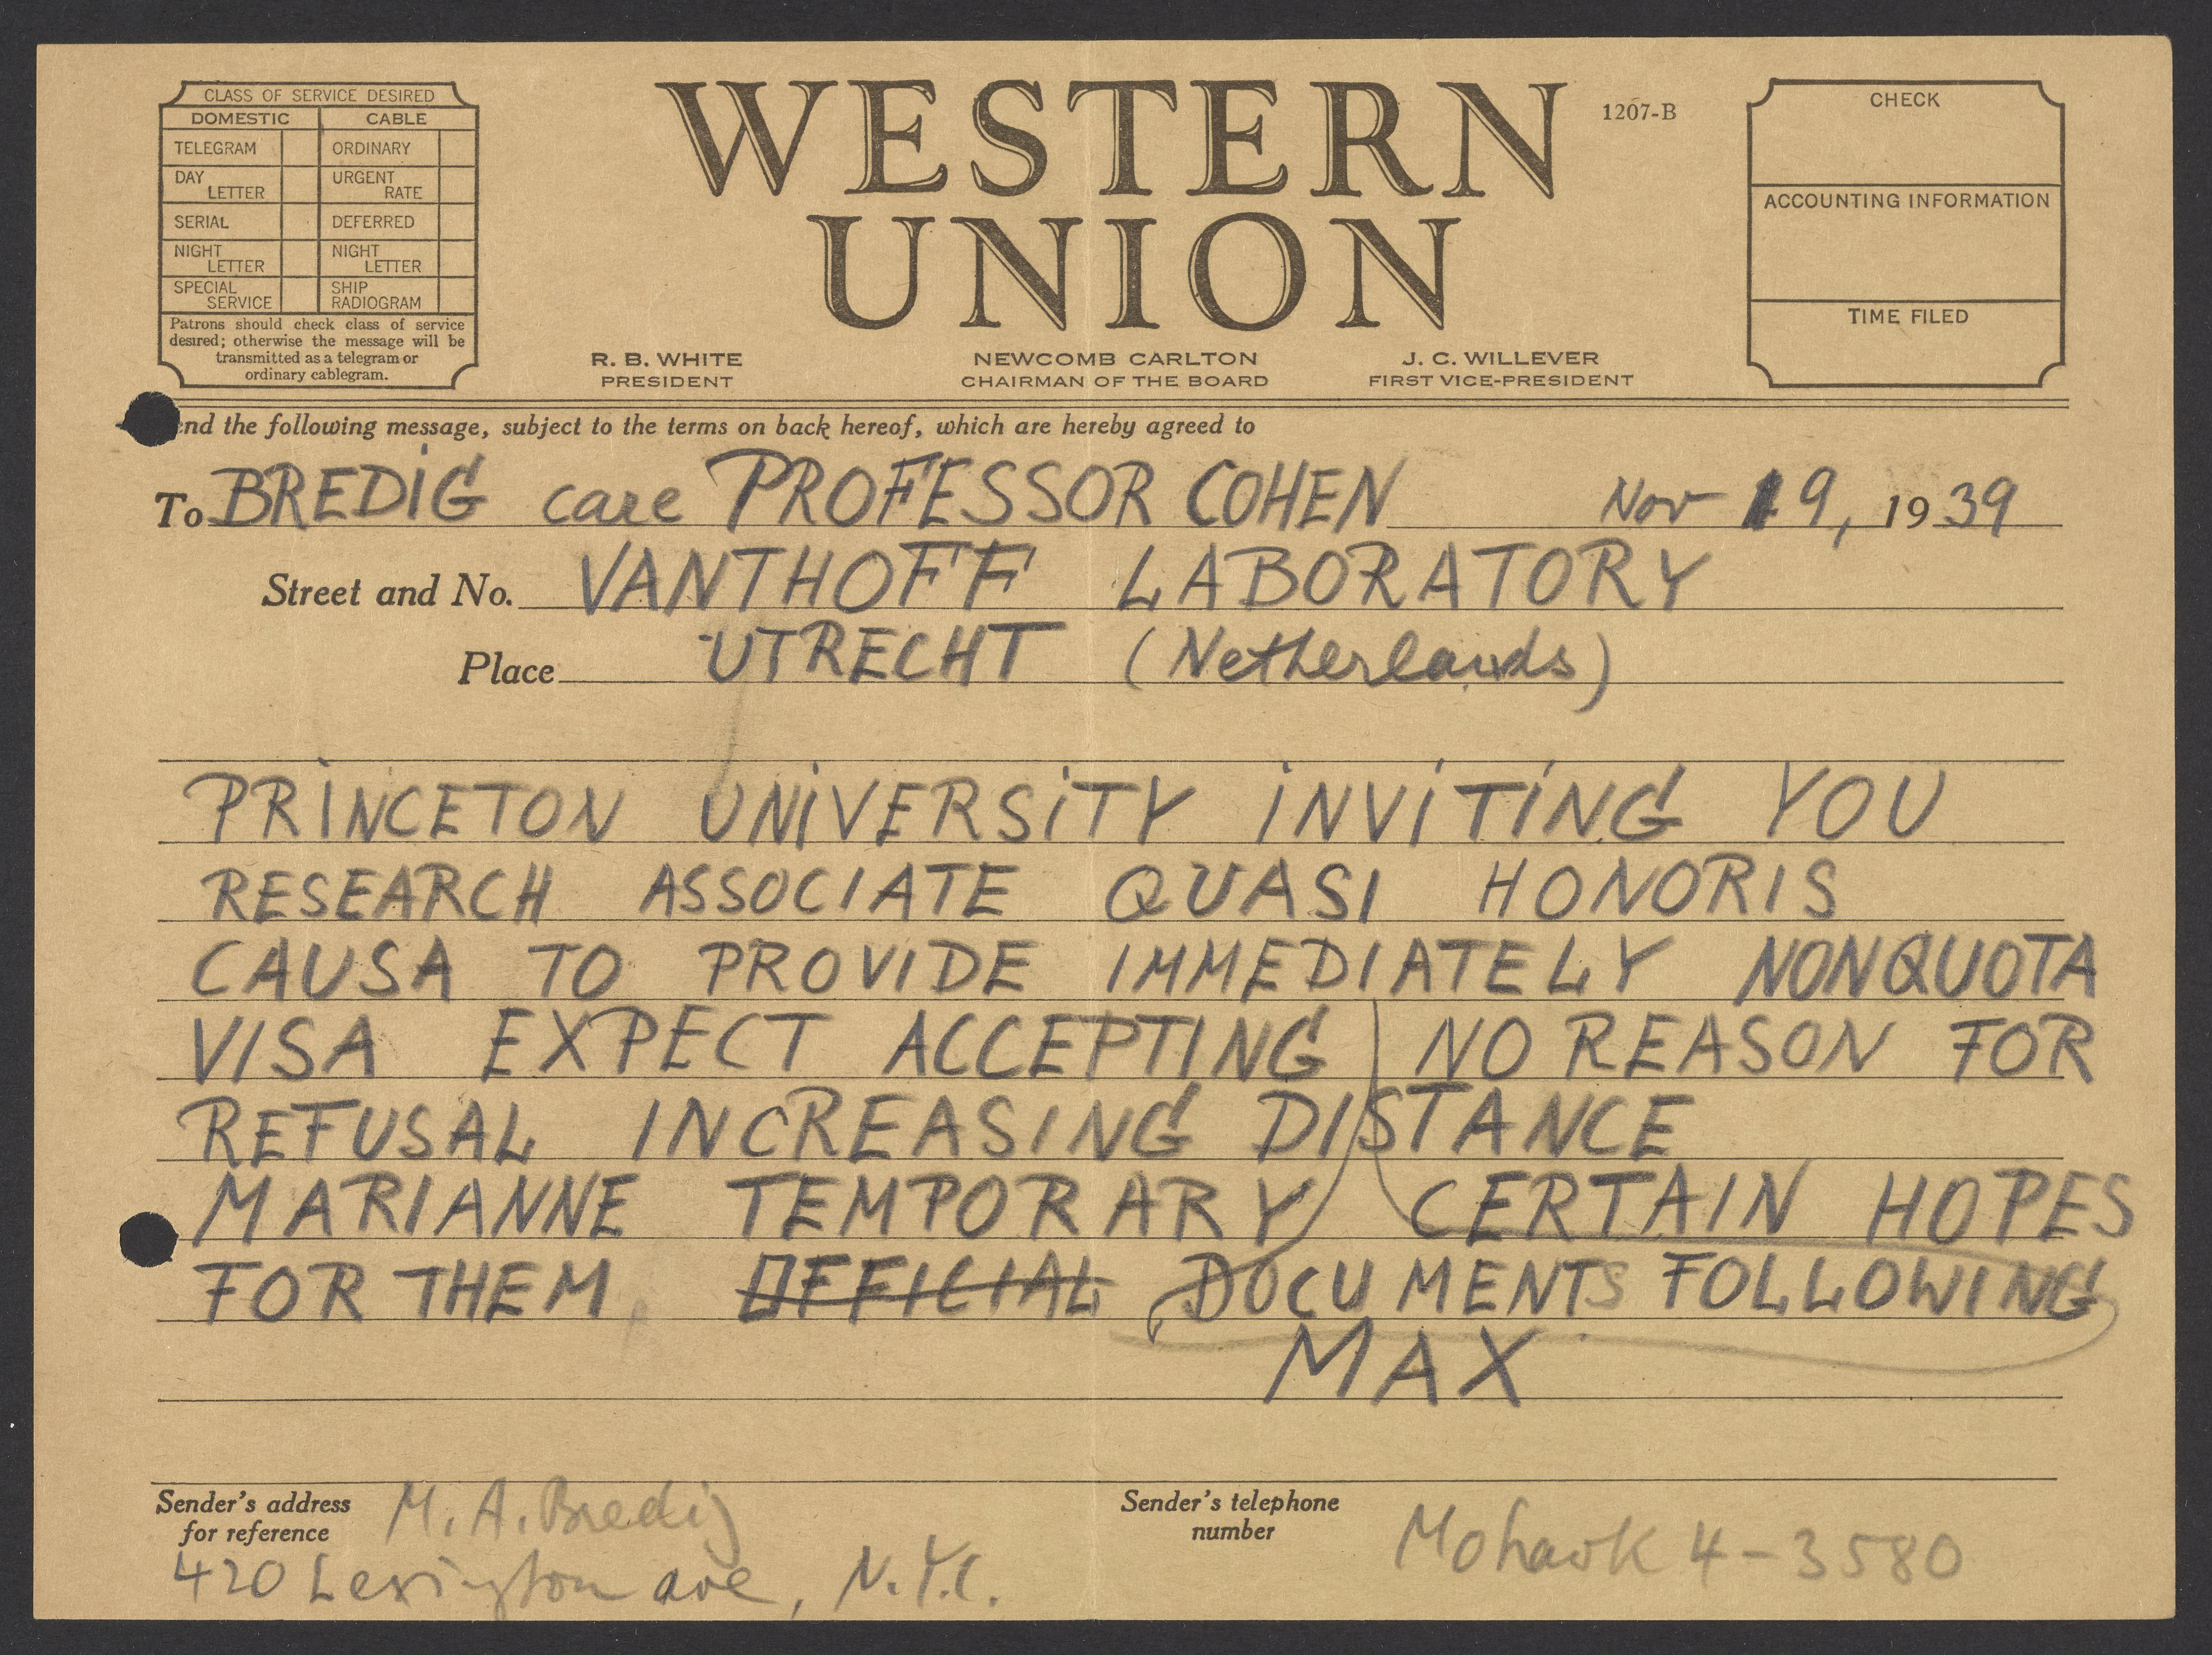 CLASS OF SERVICE DESIRED
DOMESTIC CABLE
TELEGRAM ORDINARY
DAY LETTER URGENT RATE
SERIAL DEFERRED
NIGHT LETTER NIGHT LETTER
SPECIAL SERVICE SHIP RADIOGRAM
Patrons should check class of service
desired; otherwise the message will be
transmitted as a telegram or
ordinary cablegram.
WESTERN
UNION
1207-B
CHECK
ACCOUNTING INFORMATION
TIME FILED
R. B. WHITE
PRESIDENT
NEWCOMB CARLTON
CHAIRMAN OF THE BOARD
J. C. WILLEVER
FIRST VICE-PRESIDENT
end the following message, subject to the terms on back hereof, which are hereby agreed to
To BREDIG care PROFESSOR COHEN Nov 19, 1939
Street and No. VANTHOFF LABORATORY
Place UTRECHT (Netherlands)
PRINCETON UNIVERSITY INVITING YOU
RESEARCH ASSOCIATE QUASI HONORIS
CAUSA TO PROVIDE IMMEDIATELY NONQUOTA
VISA EXPECT ACCEPTING NO REASON FOR
REFUSAL INCREASING DISTANCE
MARIANNE TEMPORARY CERTAIN HOPES
FOR THEM OFFICIAL DOCUMENTS FOLLOWING
MAX
Sender's address
for reference
M. A. Bredig
420 Lexington ave, N.Y.C.
Sender's telephone
number
Mohawk 4-3580